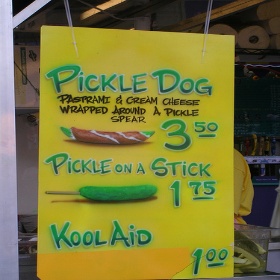 Pickle Dog
Pastrami & Cream Cheese
Wrapped Around A Pickle
Spear
3 50
Pickle on a Stick
1 75
Kool Aid
1.00